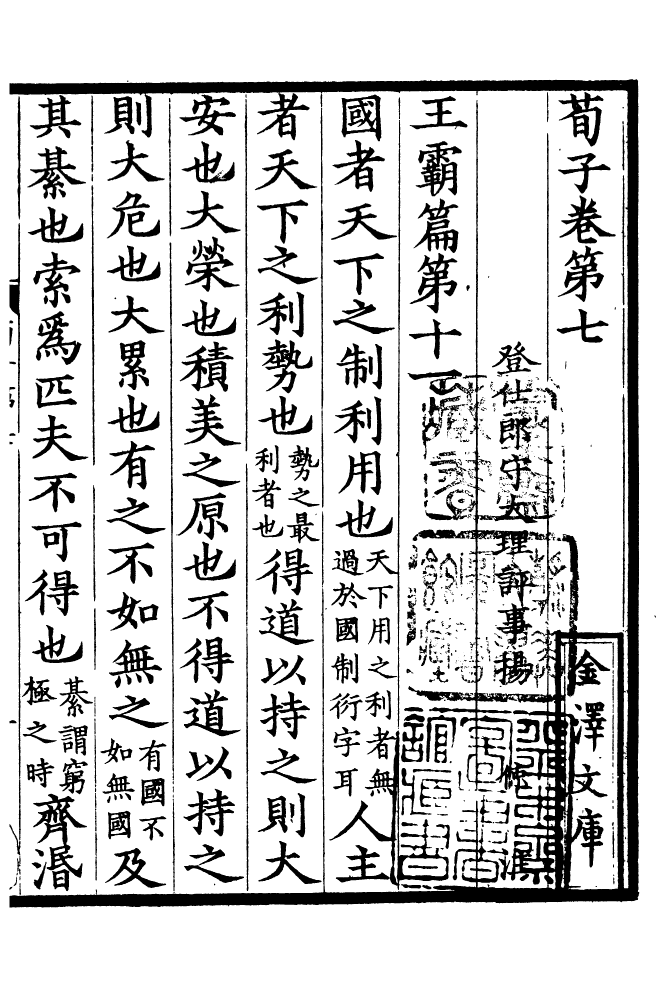 荀子卷第七
登仕郎守大理評事楊倞注
王霸篇第十一
國者天下之制利用也天下用之利者無過於國制衍字耳人主
者天下之利勢也勢之最利者也得道以持之則大
安也大榮也積美之原也不得道以持之
則大危也大累也有之不如無之有國不如無國及
其綦也索爲匹夫不可得也綦謂窮極之時齊湣
金澤文庫